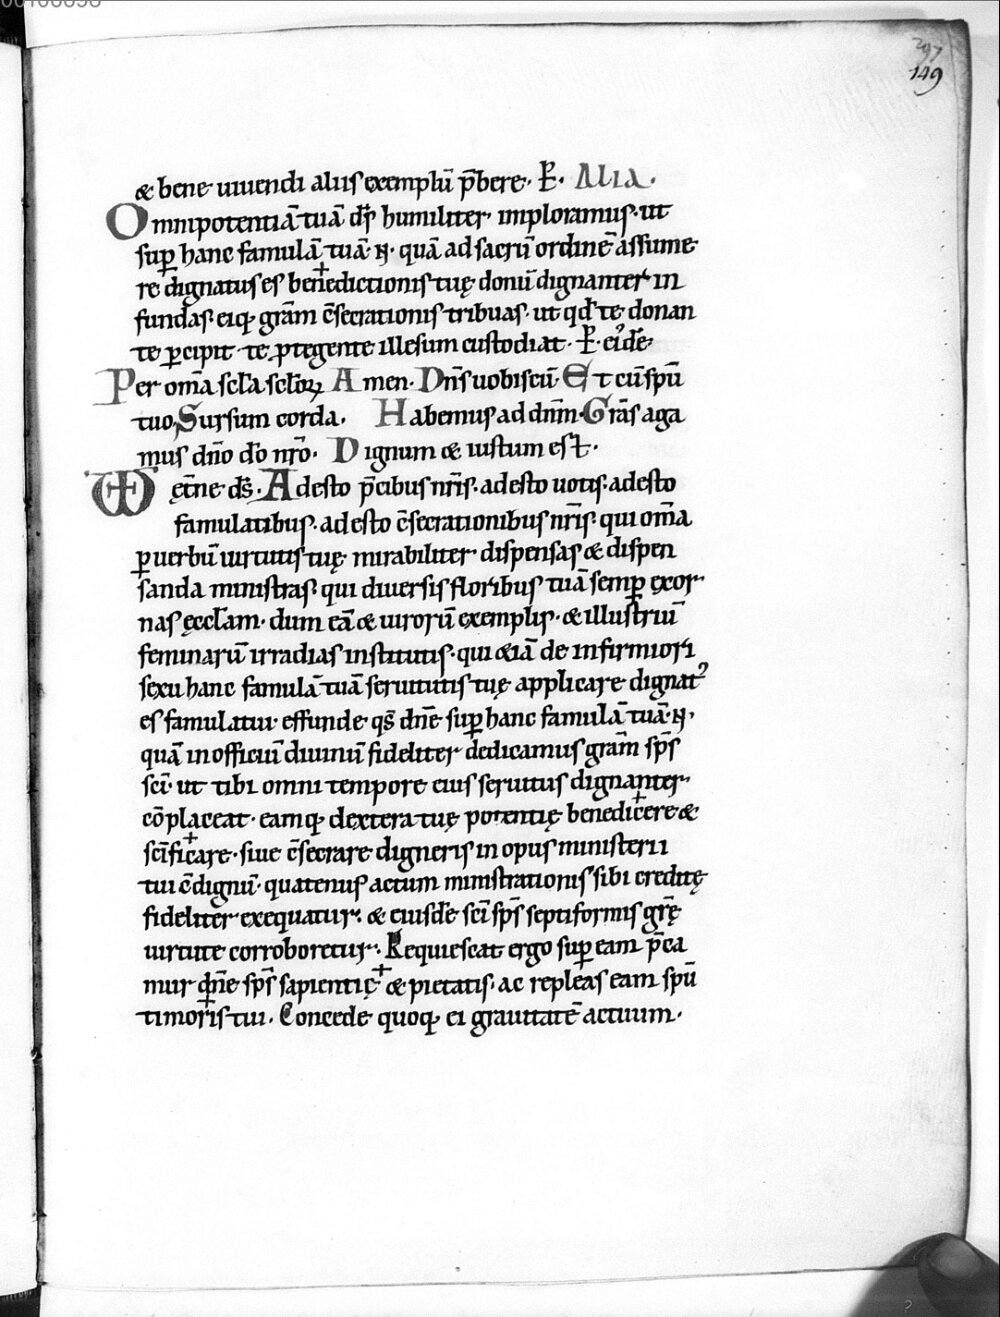 297
149
& bene uiuendi aliis exemplū p̄bere. P. ALIA.
Omnipotentiā tuā ds̄ humiliter imploramus. ut
sup hanc famulā tuā .N. quā ad sacrū ordinē assume
re dignatus es bene+dictionis tuę donū dignanter in
fundas. eiq; grām c̄secrationis tribuas. ut qd te donan
te p̱cipit te p̱tegente illesum custodiat. P. eid̄e
Per om̄a sclā sclōꝝ Amen. Dn̄s uobiscū. Et cū sp̄u
tuo. Sursum corda. Habemus ad dn̄m. Grās aga
mus dn̄o dō nr̄o. Dignum & iustum est.
VD ęt̄ne ds̄. Adesto p̄cibus nr̄is. adesto uotis. adesto
famulatibus. adesto c̄secrationibus nr̄is. qui om̄a
p̱ uerbū uirtutis tuę mirabiliter dispensas & dispen
sanda ministras. qui diuersis floribus tuā semp̱ exor
nas ęccl̄am. dum eā & uirorū exemplis. & illustriū
feminarū irradias institutis. qui &iā de infirmiori
sexu hanc famulā tuā seruitutis tuę applicare dignat᾿
es famulatui. effunde qs̄ dn̄e sup̱ hanc famulā tuā .N.
quā in officiū diuinū fideliter dedicamus grām sp̄s
sc̄i. ut tibi omni tempore eius seruitus dignanter
cōplaceat. eamq; dextera tuę potentię benedi+cere &
sc̄ifi+care. siue c̄secrare digneris in opus ministerii
tui c̄dignū. quatenus actum ministrationis sibi creditę
fideliter exequatur. & eiusdē sc̄i sp̄s septiformis gr̄ę
uirtute corroboretur. Requiescat ergo sup̱ eam p̄ca
mur dn̄e sp̄s sapientię + & pietatis. ac repleas eam sp̄u
timoris tui. Concede quoq; ei grauitatē actuum.